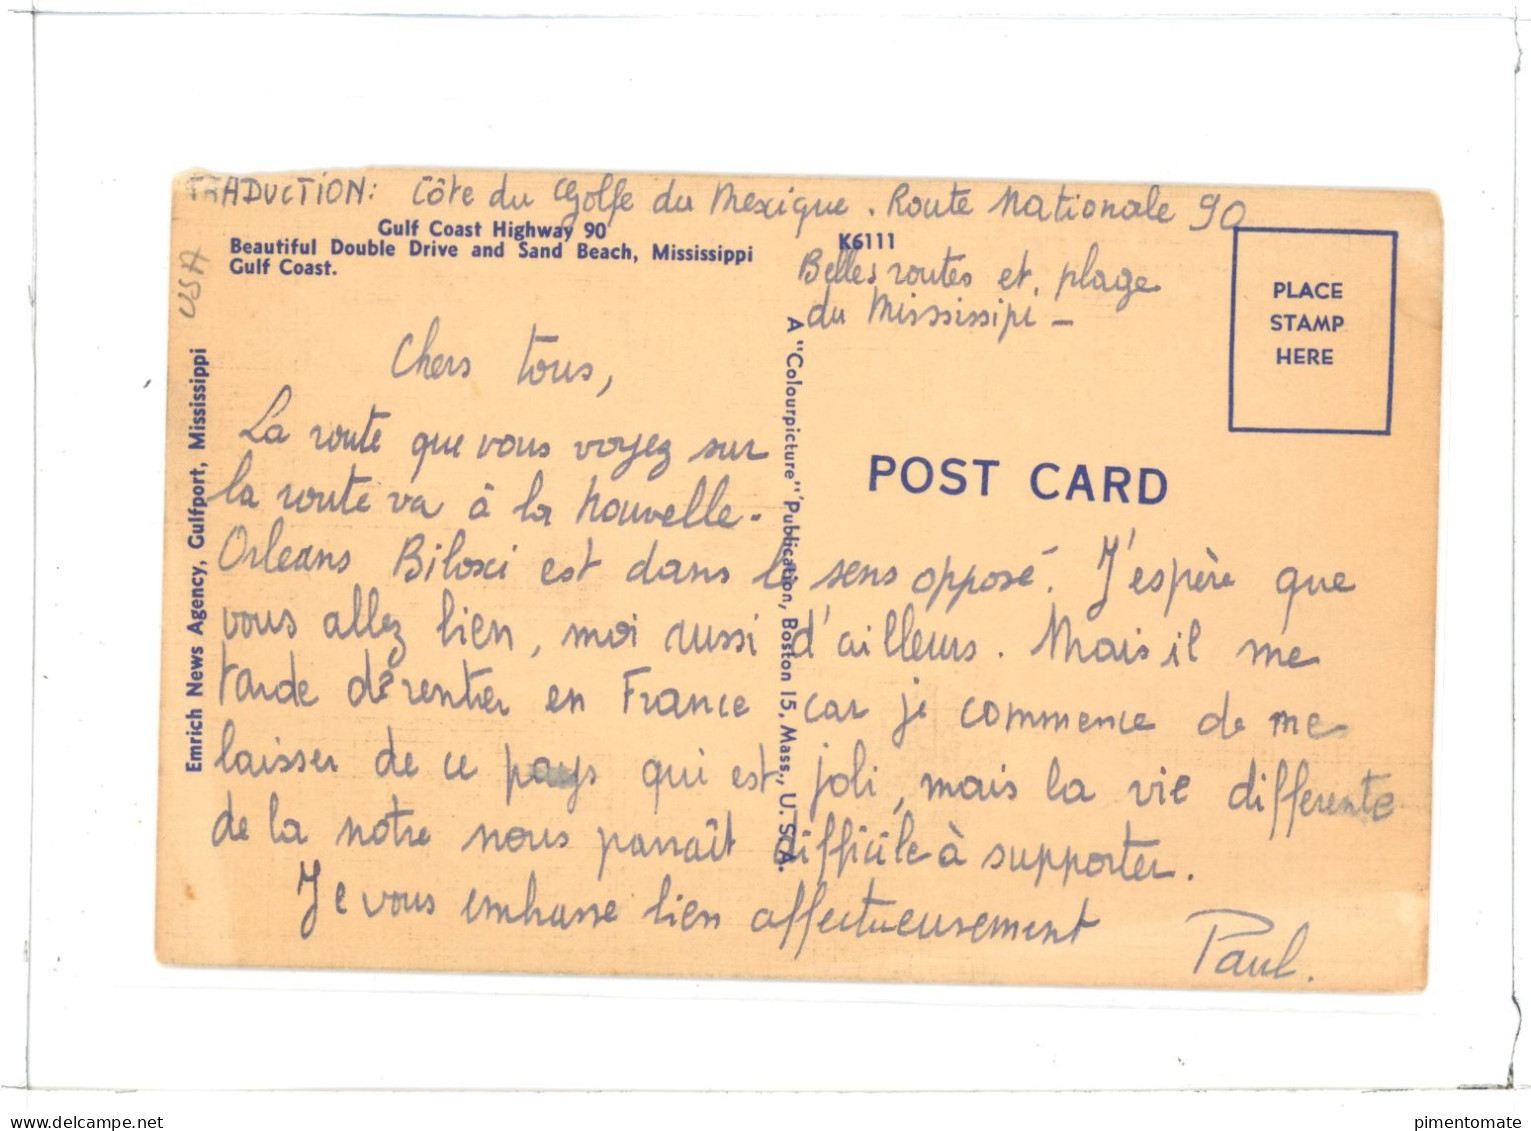 TRADUCTION: Côte du Golfe du Mexique. Route Nationale 90
Gulf Coast Highway 90
Beautiful Double Drive and Sand Beach, Mississippi
Gulf Coast.
K6111
Belles routes et plage
du Mississipi –
USA
PLACE
STAMP
HERE
POST CARD
Emrich News Agency, Gulfport, Mississippi
A "Colourpicture" Publication, Boston 15, Mass., U. S. A.
Chers tous,
La route que vous voyez sur
la route va à la Nouvelle-
Orleans Biloxi est dans le sens opposé. J'espère que
vous allez bien, moi aussi d'ailleurs. Mais il me
tarde de rentrer en France car je commence de me
laisser de ce pays qui est joli, mais la vie differente
de la notre nous parraît difficile à supporter.
Je vous embrasse bien affectueusement
Paul.
delcampe.net
pimentomate